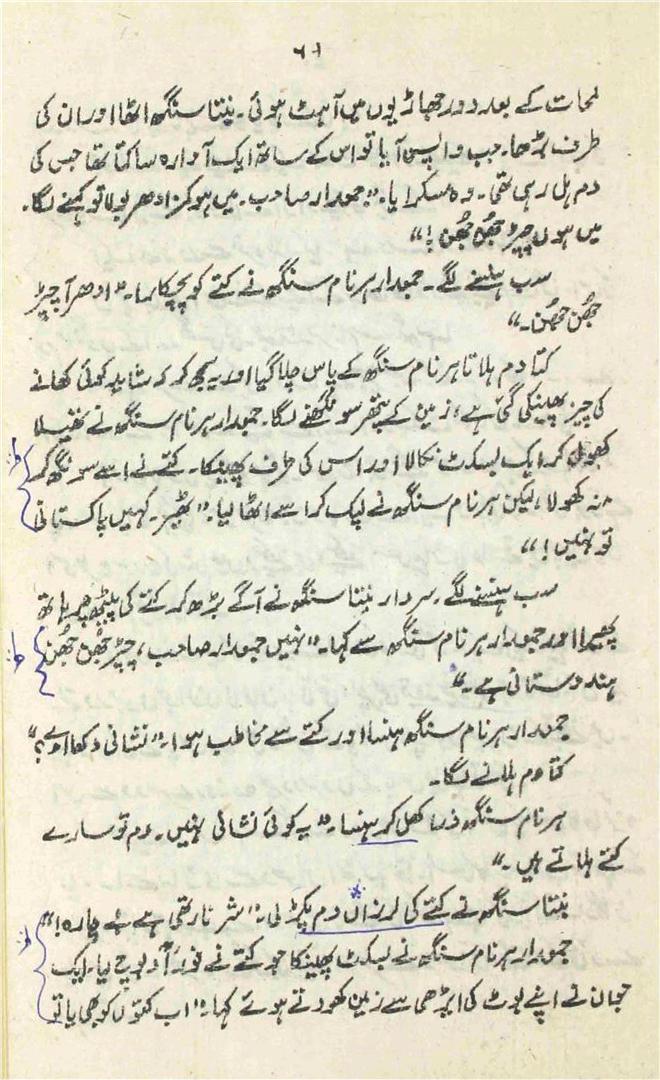 ۶۱
لمحات کے بعد دور جھاڑیوں میں آہٹ ہوئی۔ بنتا سنگھ اٹھا اور ان کی
طرف بڑھا۔ جب واپس آیا تو اس کے ساتھ ایک آوارہ سا کتا تھا جس کی
دم ہل رہی تھی۔ وہ مسکرایا۔ ”جمعدار صاحب۔ میں ہو کمز ادھر بولا تو کہنے لگا۔
میں ہوں چپڑ جُھن جُھن!“
سب ہنسنے لگے۔ جمعدار ہرنام سنگھ نے کتے کو پچکارا۔ ”ادھر آ چپڑ
جُھن جُھن۔“
کتا دم ہلاتا ہرنام سنگھ کے پاس چلا گیا اور یہ سمجھ کر کہ شاید کوئی کھانے
کی چیز پھینکی گئی ہے، زمین کے پتھر سونگھنے لگا۔ جمعدار ہرنام سنگھ نے تھیلا
کھول کر ایک بسکٹ نکالا اور اس کی طرف پھینکا۔ کتے نے اسے سونگھ کر
منہ کھولا، لیکن ہرنام سنگھ نے لپک کر اسے اٹھا لیا۔ ”ٹھہر۔ کہیں پاکستانی
تو نہیں!“
سب ہنسنے لگے۔ سردار بنتا سنگھ نے آگے بڑھ کر کتے کی پیٹھ پر ہاتھ
پھیرا اور جمعدار ہرنام سنگھ سے کہا۔ ”نہیں جمعدار صاحب، چپڑ جُھن جُھن
ہندوستانی ہے۔“
جمعدار ہرنام سنگھ ہنسا اور کتے سے مخاطب ہوا۔ ”نشانی دکھا اوئے؟“
کتا دم ہلانے لگا۔
ہرنام سنگھ ذرا کھل کر ہنسا۔ ”یہ کوئی نشانی نہیں۔ دم تو سارے
کتے ہلاتے ہیں۔“
بنتا سنگھ نے کتے کی لرزاں دم پکڑ لی۔ ”شرنارتھی ہے بے چارہ!“
جمعدار ہرنام سنگھ نے بسکٹ پھینکا جو کتے نے فوراً دبوچ لیا۔ ایک
جوان نے اپنے بوٹ کی ایڑھی سے زمین کھودتے ہوئے کہا۔ ”اب کتوں کو بھی یا تو